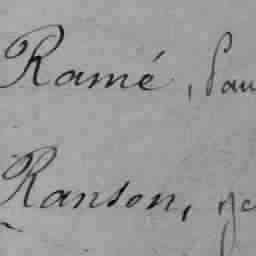 Ramé, Pau
Ranson,